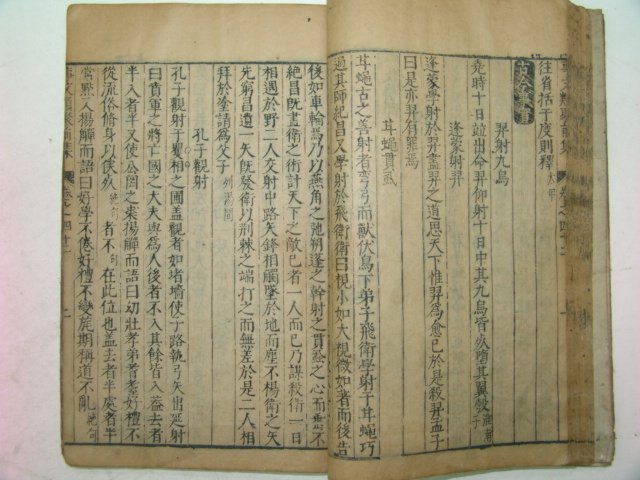 往省括于度則釋太甲
古今事實
羿射九烏
堯時十日竝出命羿仰射十日中其九烏皆死墮其翼淮南子
逢蒙射羿
逢蒙學射於羿盡羿之道思天下惟羿爲愈己於是殺羿孟子
曰是亦羿有罪焉
耳蠅貫虱
耳蠅古之善射者彎弓而獸伏鳥下弟子飛衛學射于耳蠅巧
過其師紀昌又學射於飛衛衛曰視小如大視微如著而後告
後如車輪焉乃以燕角之弧朔蓬之簳射之貫虱之心而懸不
絶昌既盡衛之術計天下之敵已者一人而已乃謀殺衛一日
相遇於野二人交射中路矢鋒相觸墜於地而塵不楊衛之矢
先窮昌遺一矢旣發衛以荆棘之端打之而無差於是二人相
拜於塗請爲父子列湯問
孔子觀射
孔子觀射于矍相之圃蓋觀者如堵墻使子路執弓矢出延射
曰賁軍之將亡國之大夫與爲人後者不入其餘皆入蓋去者
半入者半又使公罔之裘揚觶而語曰幼壯孝弟耆耋好禮不
從流俗修身以俟死者不在此位也蓋去者半處者半
點人揚觶而語曰好學不倦好禮不變旄期稱道不亂
事文類聚前集 卷之四十二